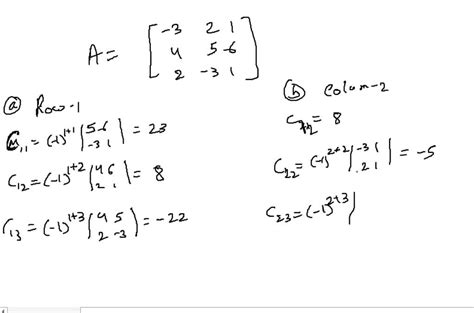 A = [ -3 2 1
4 5 -6
2 -3 1 ]
ⓐ Row-1
C₁₁ = (-1)¹⁺¹ | 5 -6
-3 1 | = 23
C₁₂ = (-1)¹⁺² | 4 6
2 1 | = 8
C₁₃ = (-1)¹⁺³ | 4 5
2 -3 | = -22
ⓑ Colum-2
C₁₂ = 8
C₂₂ = (-1)²⁺² | -3 1
2 1 | = -5
C₂₃ = (-1)²⁺³ |